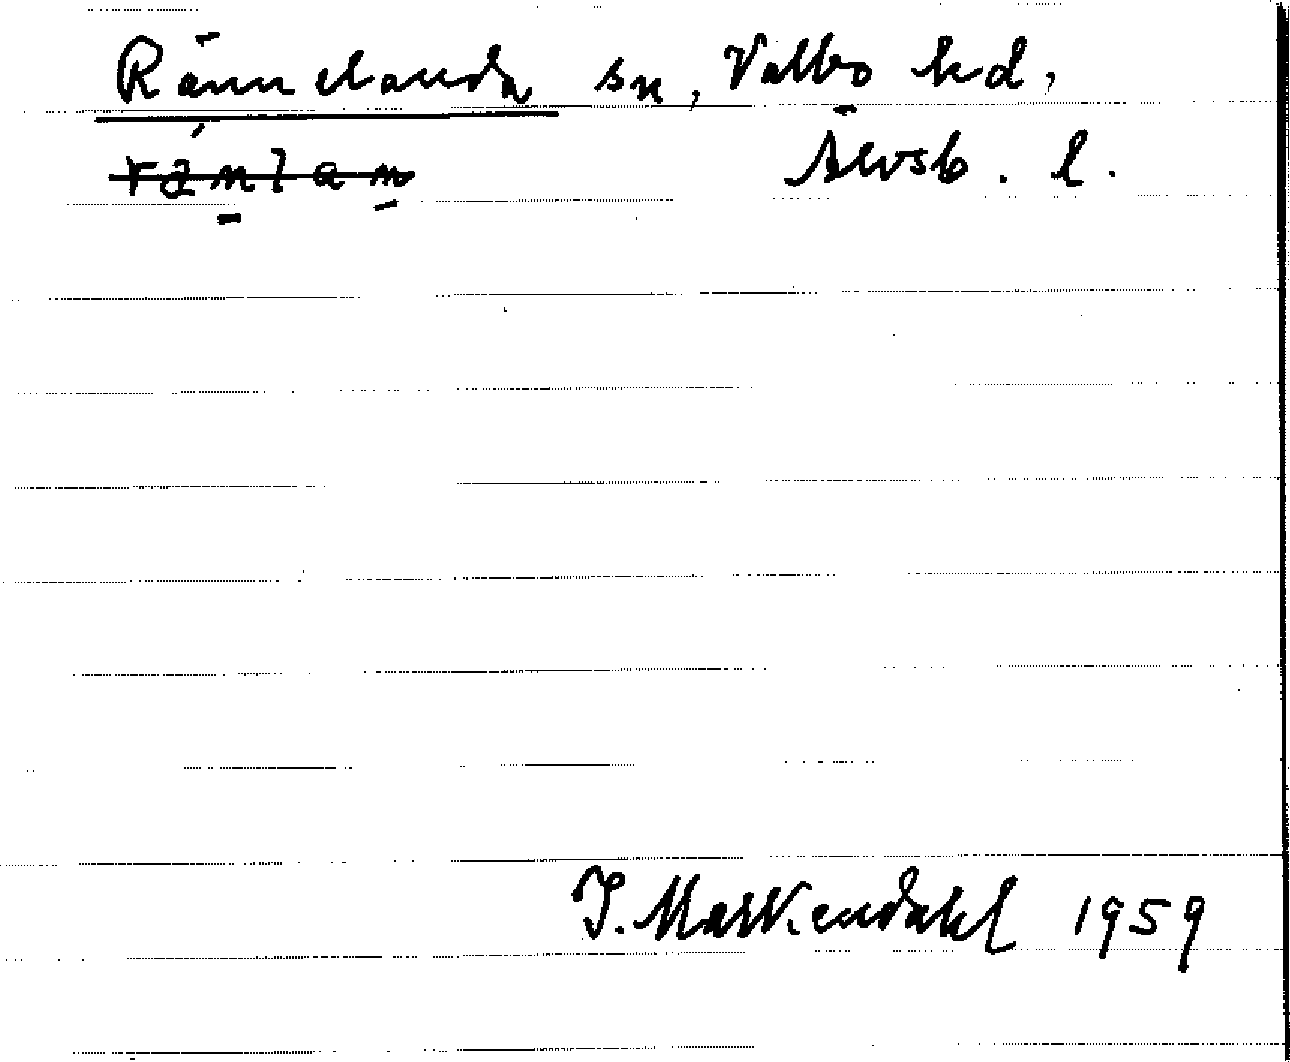 Rännelanda sn, Valbo hd,
Älvsb. l.
J. Markendahl 1959